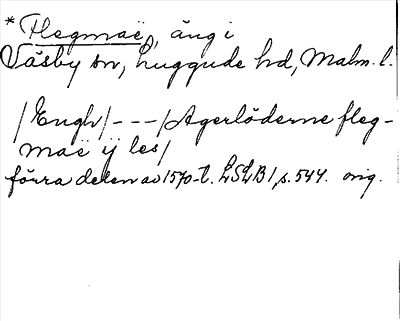 *Flegmaë, äng i
Väsby sn, Luggude hd, Malm. l.
/Engh/ - - - /Agerlöderne fleg-
maë ij les/
förra delen av 1570-t. LSLB 1, s. 544. orig.